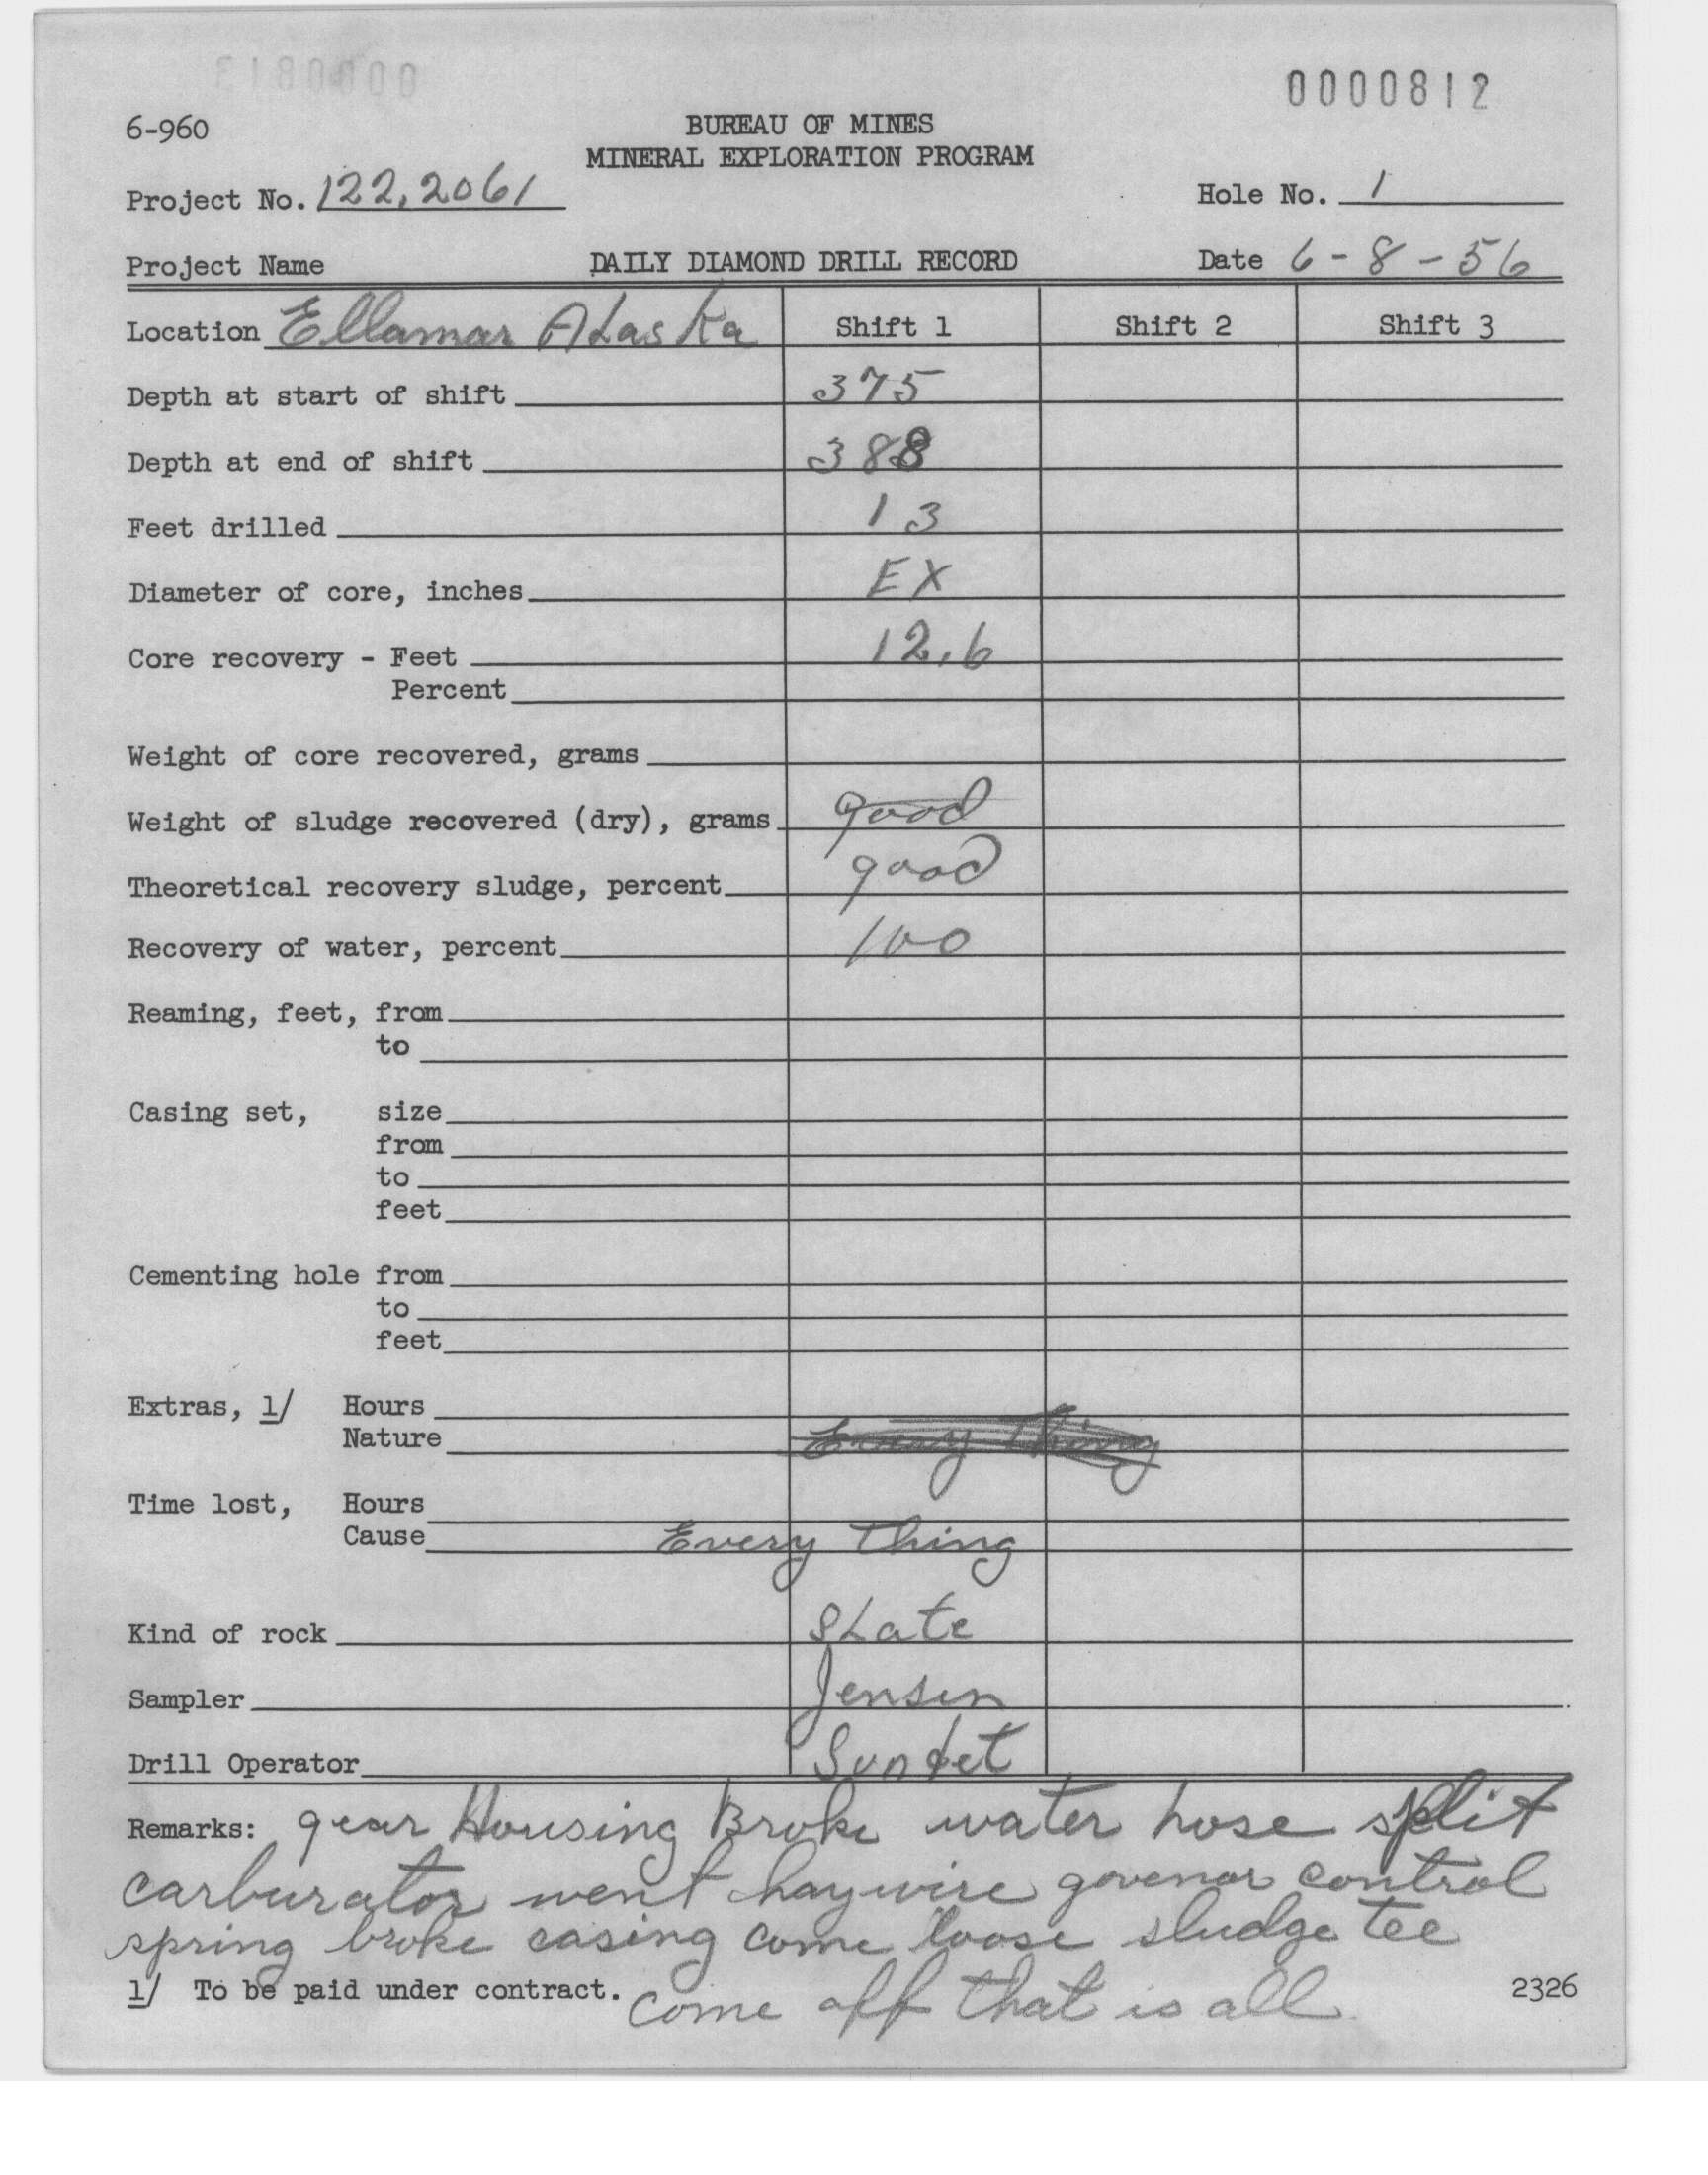 0000812
6-960
BUREAU OF MINES
MINERAL EXPLORATION PROGRAM
Project No. 122,2061 Hole No. 1
Project Name DAILY DIAMOND DRILL RECORD Date 6-8-56
Location Ellamar Alaska Shift 1 Shift 2 Shift 3
Depth at start of shift 375
Depth at end of shift 388
Feet drilled 13
Diameter of core, inches EX
Core recovery - Feet 12.6
Percent
Weight of core recovered, grams
Weight of sludge recovered (dry), grams good
Theoretical recovery sludge, percent good
Recovery of water, percent 100
Reaming, feet, from
to
Casing set, size
from
to
feet
Cementing hole from
to
feet
Extras, 1/ Hours
Nature Every Thing
Time lost, Hours
Cause Every Thing
Kind of rock Slate
Sampler Jensen
Drill Operator
Remarks: gear Housing Broke water hose split
carburator went haywire govenor control
spring broke casing come loose sludge tee
1/ To be paid under contract. come off that is all 2326